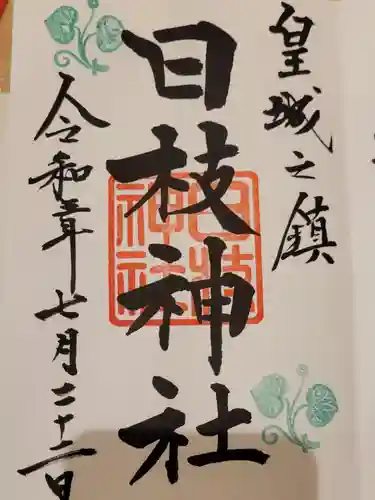 皇城之鎮
日枝神社
日枝神社
令和五年七月二十二日